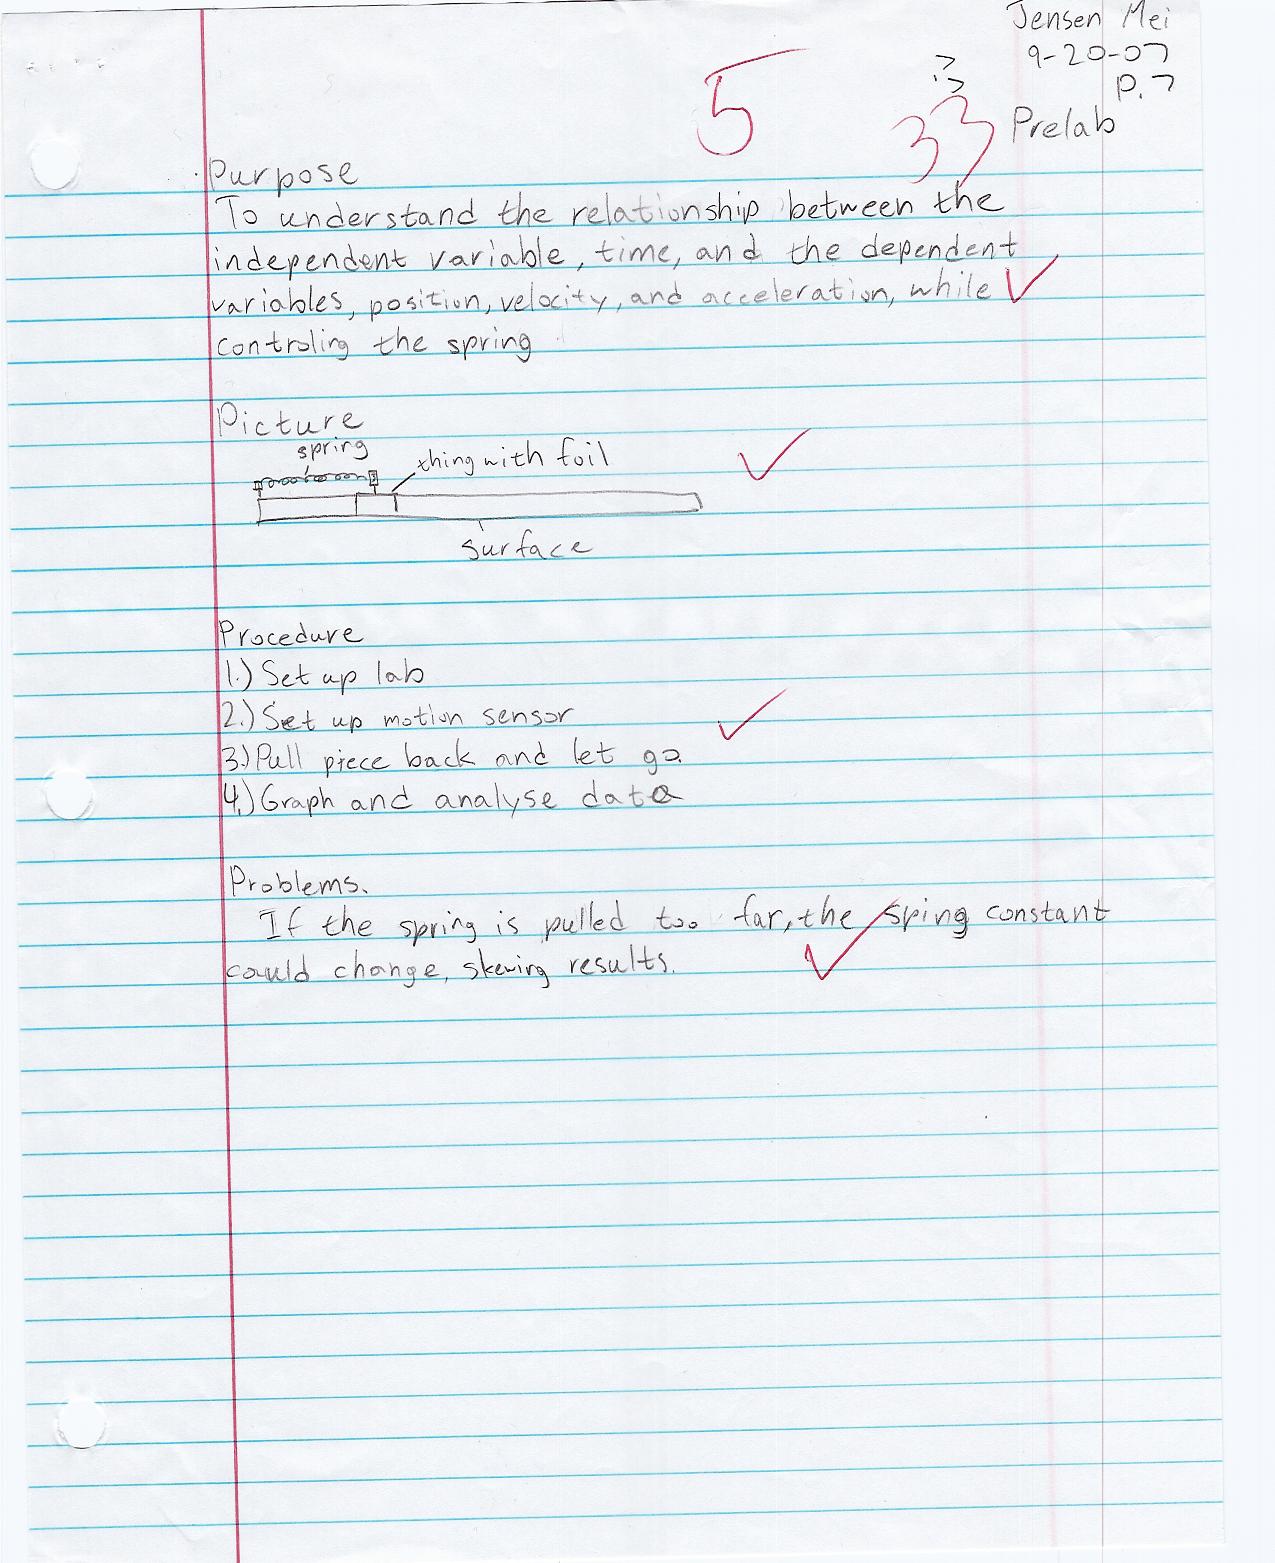 Jensen Mei
9-20-07
P.7
5
33
Prelab
Purpose
To understand the relationship between the
independent variable, time, and the dependent
variables, position, velocity, and acceleration, while
controling the spring
Picture
spring
thing with foil
surface
Procedure
1.) Set up lab
2.) Set up motion sensor
3.) Pull piece back and let go.
4.) Graph and analyse data
Problems.
If the spring is pulled too far, the spring constant
could change, skewing results.